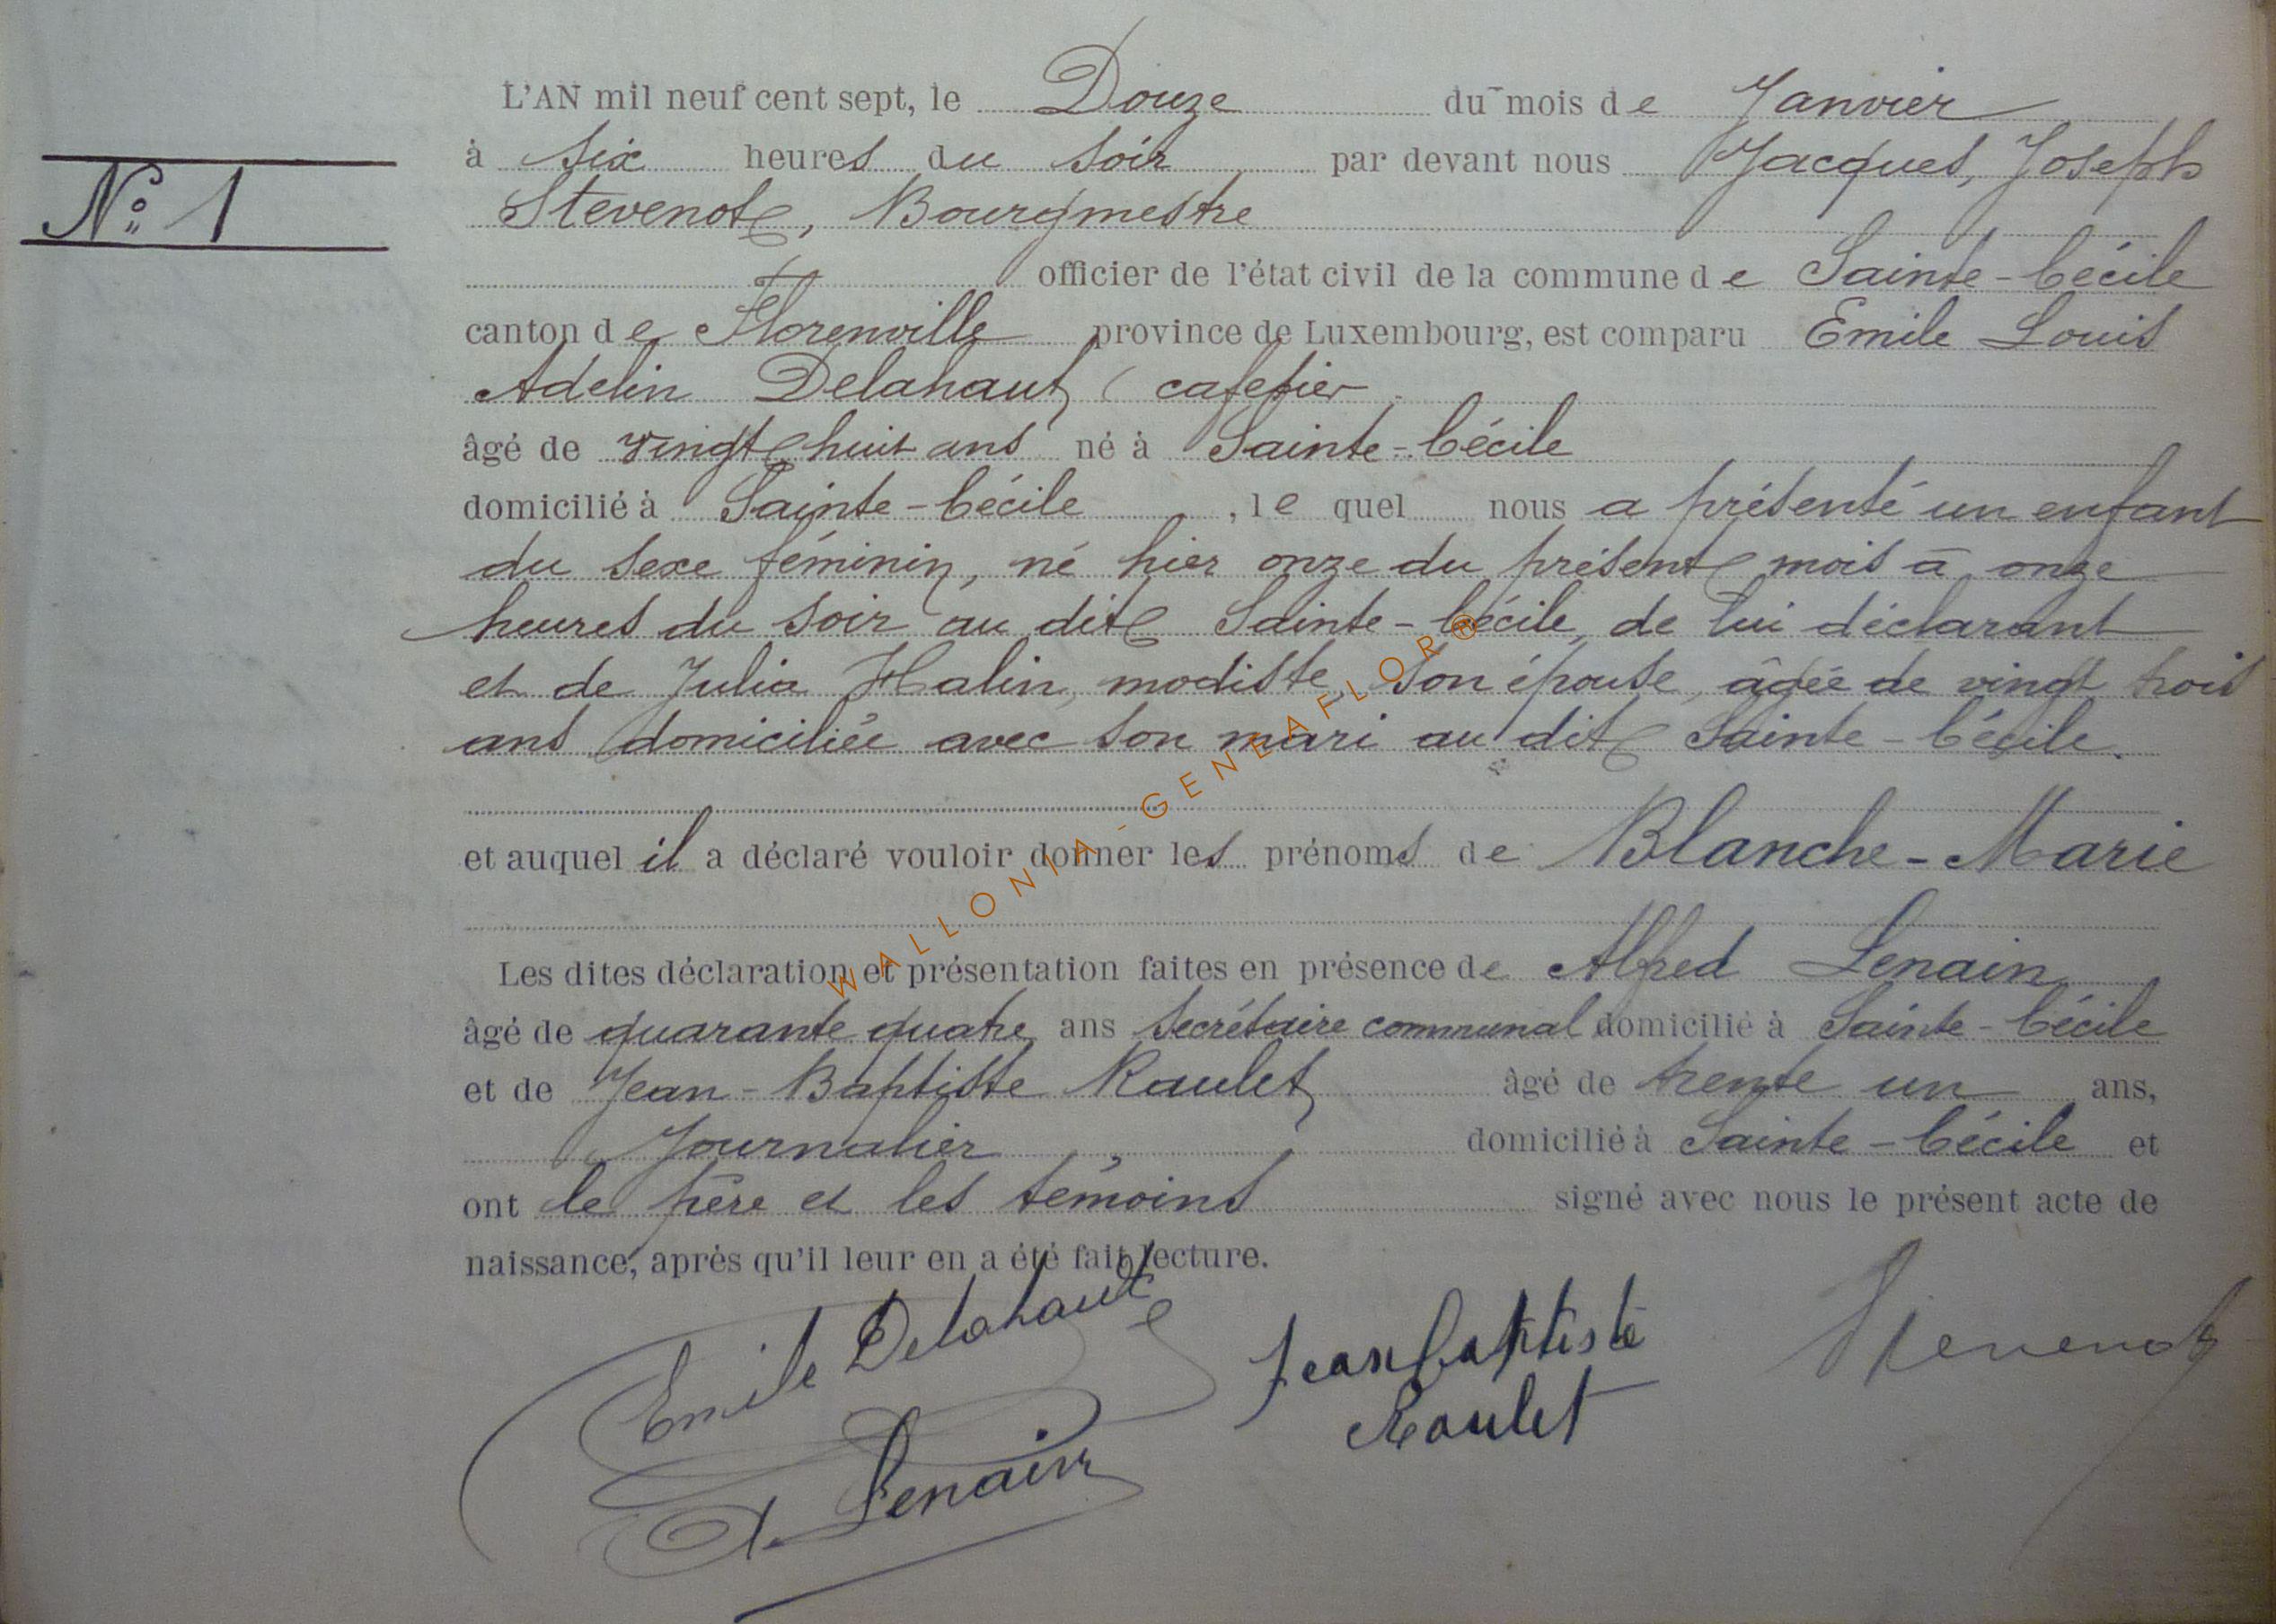 L'AN mil neuf cent sept, le Douze du mois de Janvier
à six heures du soir par devant nous Jacques, Joseph
N° 1
Stevenot, Bourgmestre
officier de l'état civil de la commune de Sainte-Cécile
canton de Florenville province de Luxembourg, est comparu Emile Louis
Adelin Delahaut, cafetier
âgé de vingt huit ans né à Sainte-Cécile
domicilié à Sainte-Cécile, le quel nous a présenté un enfant
du sexe féminin, né hier onze du présent mois à onze
heures du soir au dit Sainte-Cécile, de lui déclarant
et de Julia Halin, modiste, son épouse, âgée de vingt trois
ans domiciliée avec son mari au dit Sainte-Cécile.
et auquel il a déclaré vouloir donner les prénoms de Blanche-Marie
Les dites déclaration et présentation faites en présence de Alfred Lenain
âgé de quarante quatre ans secrétaire communal domicilié à Sainte-Cécile
et de Jean-Baptiste Raulet âgé de trente un ans,
Journalier, domicilié à Sainte-Cécile et
ont le père et les témoins signé avec nous le présent acte de
naissance, après qu'il leur en a été fait lecture.
Emile Delahaut
Jean baptiste
Raulet
Stevenot
A. Lenain
WALLONIA-GENEAFLOR®